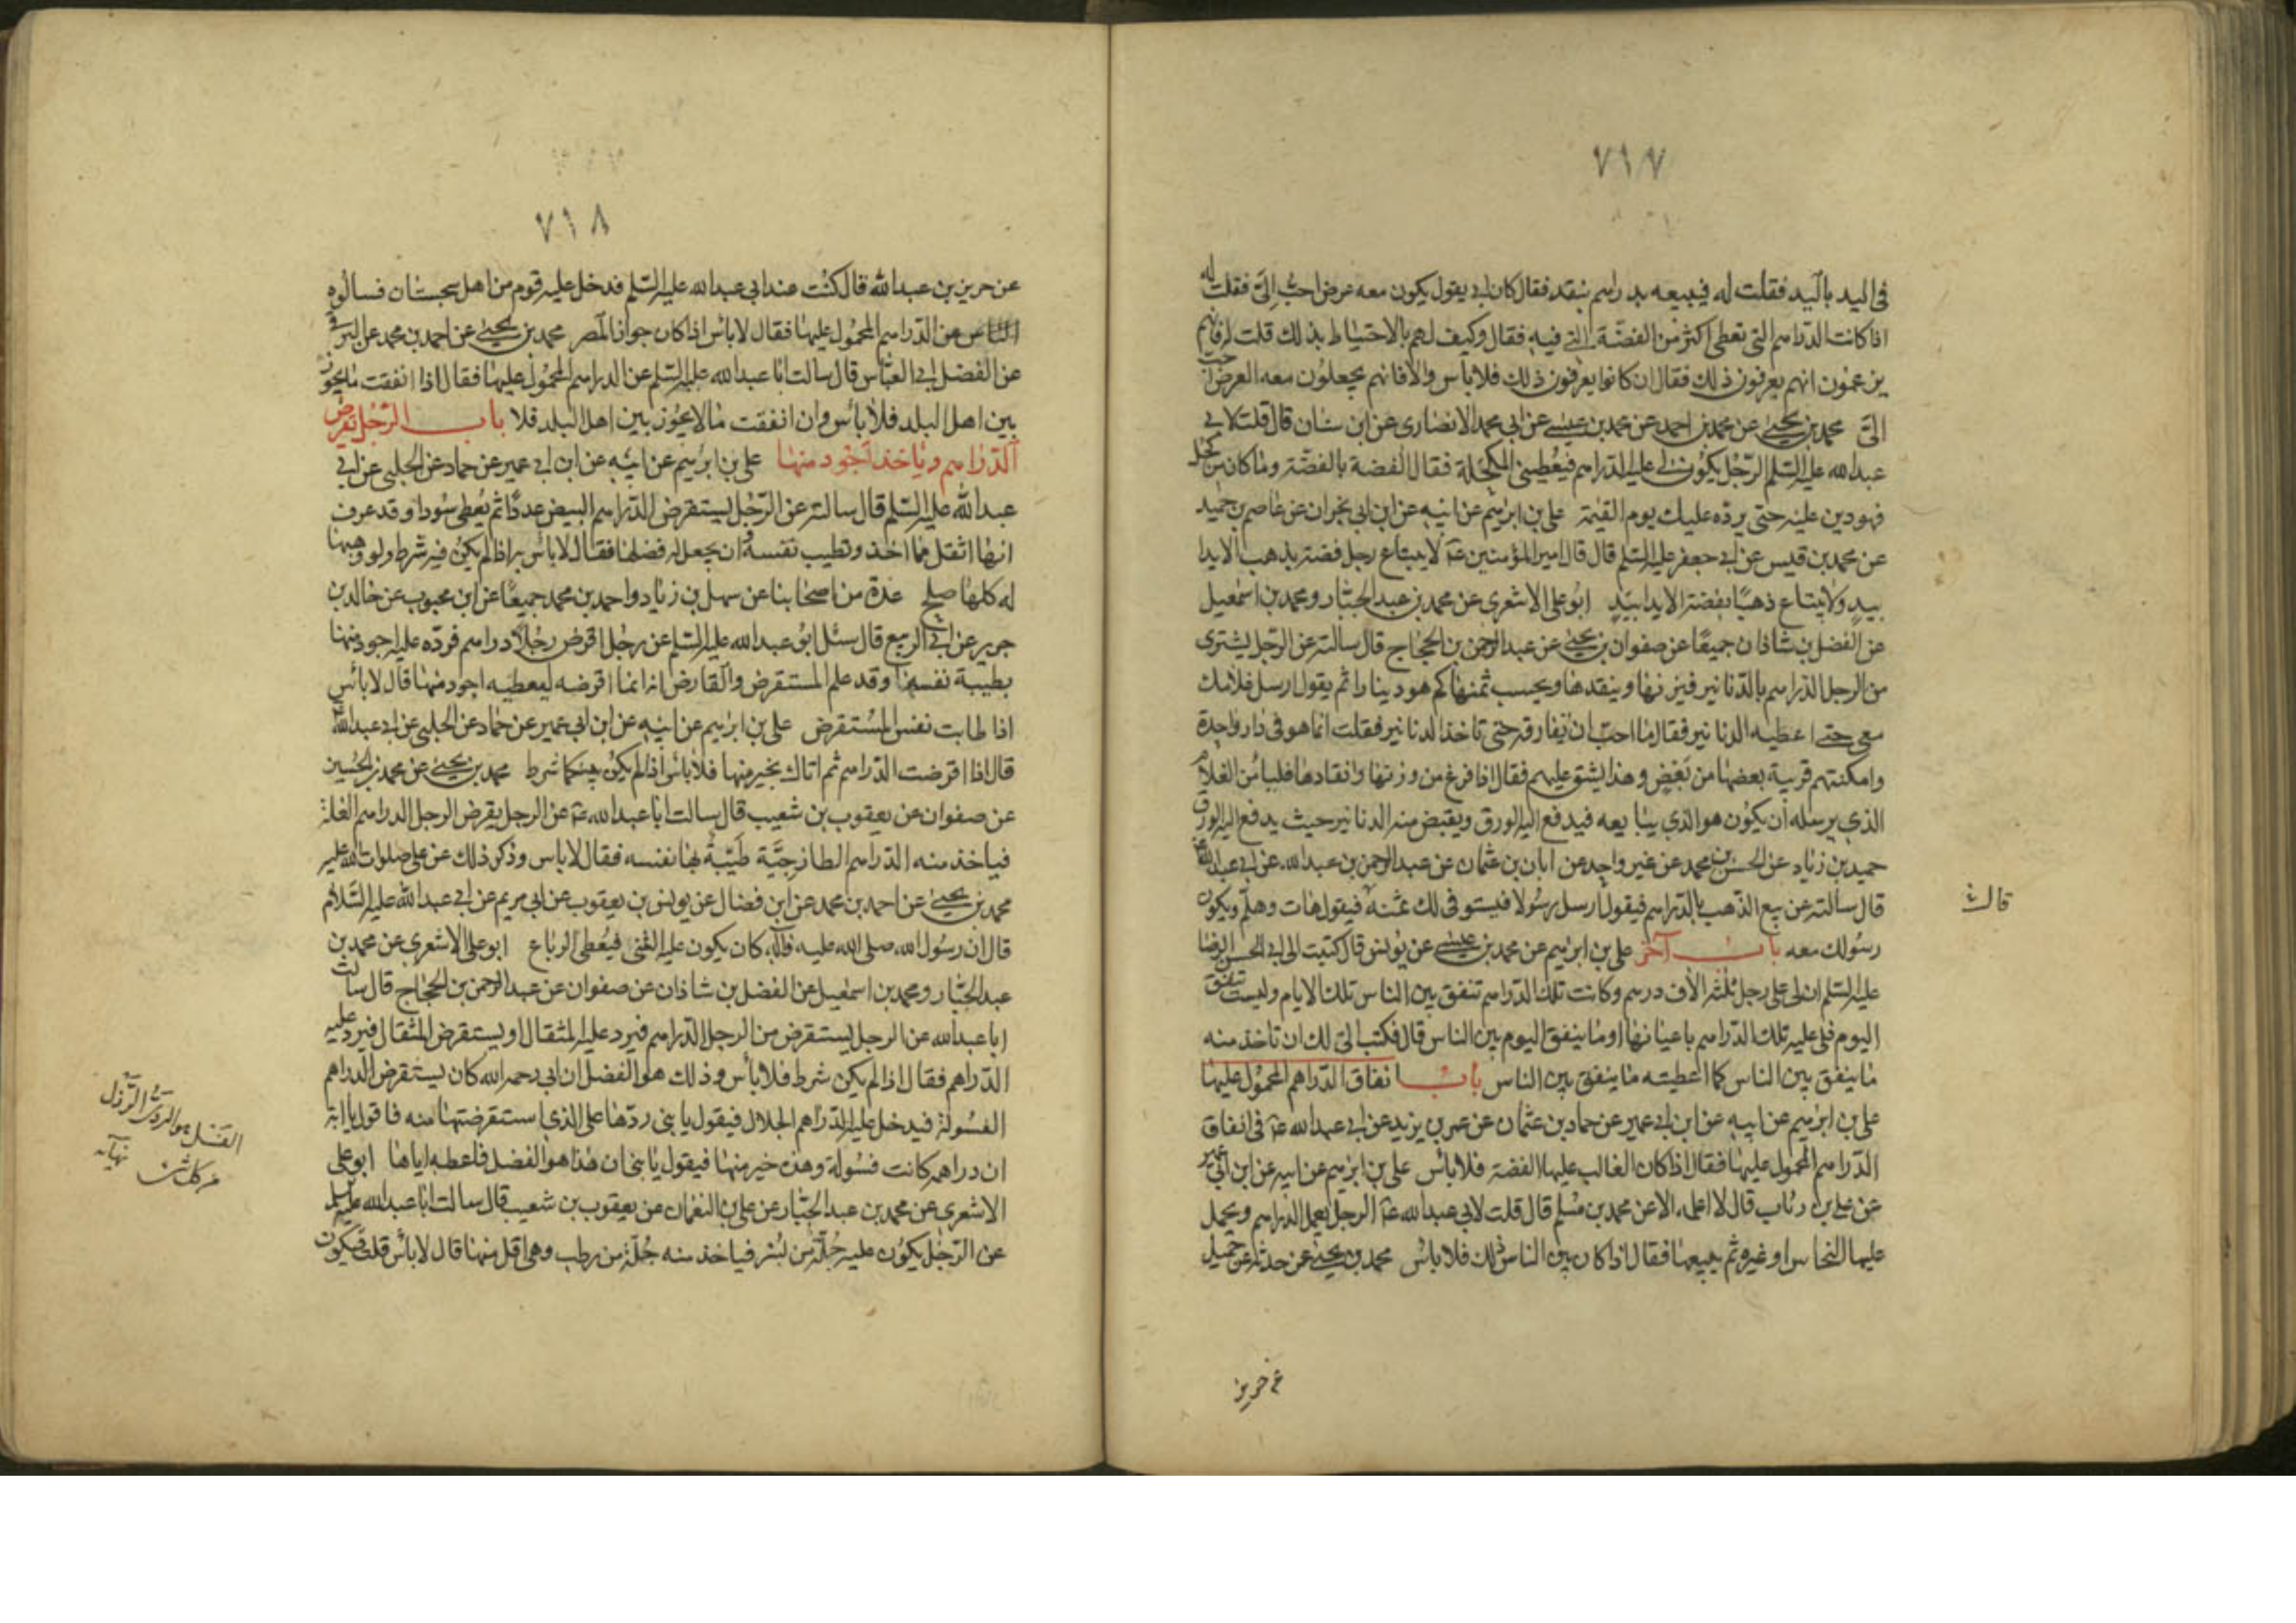 ٧١٧
فى اليد باليد فقلت له فيبيعه بدراهم بنقد فقال كان ابى يقول يكون معه عرض احب الىّ فقلت له
اذا كانت الدراهم التى تعطى اكثر من الفضّة التى فيه فقال وكيف لهم بالاحتياط بذلك قلت له فانهم
يزعمون انهم يعرفون ذلك فقال ان كانوا يعرفون ذلك فلا بأس والا فانهم يجعلون معه العرض احبّ
الىّ محمد بن يحيى عن محمد بن احمد عن محمد بن عيسى عن ابى محمد الانصارى عن ابن سنان قال قلت لابى
عبد الله عليه السّلم الرّجل يكون لى عليه الدراهم فيعطينى المكحلة فقال الفضة بالفضّة وما كان من كحل
فهو دين عليه حتى يردّه عليك يوم القيمة على بن ابرهيم عن ابيه عن ابن ابى نجران عن عاصم بن حميد
عن محمد بن قيس عن ابى جعفر عليه السلم قال قال امير المؤمنين ع لا يبتاع رجل فضة بذهب الا يدا
بيدٍ ولا يبتاع ذهبًا بفضة الا يدا بيدٍ ابو على الاشعرى عن محمد بن عبد الجبّار ومحمد بن اسمعيل
عن الفضل بن شاذان جميعًا عن صفوان بن يحيى عن عبد الرحمن بن الحجاج قال سالته عن الرّجل يشترى
من الرجل الدراهم بالدّنانير فيزنها وينقدها ويحسب ثمنها كم هو دينارا ثم يقول ارسل غلامك
معى حتى اعطيه الدنانير فقال ما احبّ ان يفارقه حتى تاخذ الدنانير فقلت انما هو فى دار واحدة
وامكنتهم قريبة بعضها من بعضٍ وهذا يشق عليهم فقال اذا فرغ من وزنها وانقادها فليأمر الغلام
الذى يرسله ان يكون هو الذى يبايعه فيدفع اليه الورق ويقبض منه الدنانير حيث يدفع اليه الورق
حميد بن زياد عن الحسن بن محمد عن غير واحد عن ابان بن عثمان عن عبد الرحمن بن عبد الله عن ابى عبد الله
قال سالته عن بيع الذهب بالدّراهم فيقول ارسل رسولا فيستوفى لك ثمنه فيقول هات وهلم ويكون
قال
رسولك معه باب آخر على بن ابرهيم عن محمد بن عيسى عن يونس قال كتبت الى ابى الحسن الرضا
عليه السّلم ان لى على رجل ثلثة الاف درهم وكانت تلك الدّراهم تنفق بين الناس تلك الايام وليست تنفق
اليوم فلى عليه تلك الدّراهم باعيانها او ما ينفق اليوم بين الناس قال فكتب الىّ لك ان تاخذ منه
ما ينفق بين الناس كما اعطيته ما ينفق بين الناس باب انفاق الدّراهم المحمول عليها
على بن ابرهيم عن ابيه عن ابن ابى عمير عن حماد بن عثمان عن عمر بن يزيد عن ابى عبد الله ع فى انفاق
الدّراهم المحمول عليها فقال اذا كان الغالب عليها الفضة فلا باس على بن ابرهيم عن ابيه عن ابن ابى عمير
عن على بن رئاب قال لا اعلمه الا عن محمد بن مسلم قال قلت لابى عبد الله ع الرجل يعمل الدراهم ويحمل
عليها النحاس او غيره ثم يبيعها فقال اذا كان بين الناس ذلك فلا باس محمد بن يحيى عن حدثه عن جميل
عن حريز
٧١٨
عن حريز بن عبد الله قال كنت عند ابى عبد الله عليه السّلم فدخل عليه قوم من اهل سجستان فسالوه
عن الدّراهم المحمول عليها فقال لا باس اذا كان جوازا لمصر محمد بن يحيى عن احمد بن محمد عن البرقى
عن الفضل ابى العبّاس قال سالت ابا عبد الله عليه السّلم عن الدراهم المحمول عليها فقال اذا انفقت ما يجوز
بين اهل البلد فلا بأس وان انفقت ما لا يجوز بين اهل البلد فلا باب الرّجل يقرض
الدّراهم وياخذ اجود منها على بن ابرهيم عن ابيه عن ابن ابى عمير عن حماد عن الحلبى عن ابى
عبد الله عليه السّلم قال سالته عن الرّجل يستقرض الدّراهم البيض عددًا ثم يعطى سودا وقد عرف
انها اثقل مما اخذ وتطيب نفسه ان يجعل له فضلها فقال لا باس به اذا لم يكن فيه شرط ولو وهبها
له كلها صلح عدة من اصحابنا عن سهل بن زياد واحمد بن محمد جميعًا عن ابن محبوب عن خالد بن
جرير عن ابى الربيع قال سئل ابو عبد الله عليه السّلم عن رجل اقرض رجلًا دراهم فردّ عليه اجود منها
بطيبة نفسه وقد علم المستقرض والقارض انه انما اقرضه ليعطيه اجود منها قال لا باس
اذا طابت نفس المستقرض على بن ابرهيم عن ابيه عن ابن ابى عمير عن حماد عن الحلبى عن ابى عبد الله
قال اذا اقرضت الدّراهم ثم اتاك بخير منها فلا باس اذا لم يكن بينكما شرط محمد بن يحيى عن محمد بن الحسين
عن صفوان عن يعقوب بن شعيب قال سالت ابا عبد الله ع عن الرجل يقرض الرجل الدراهم الغلة
فياخذ منه الدّراهم الطازجيّة طيّبةً بها نفسه فقال لا باس وذكر ذلك عن على صلوات الله عليه
محمد بن يحيى عن احمد بن محمد عن ابن فضال عن يونس بن يعقوب عن ابى مريم عن ابى عبد الله عليه السّلام
قال ان رسول الله صلى الله عليه وآله كان يكون عليه الثنى فيُعطى الرباع ابو على الاشعرى عن محمد بن
عبد الجبّار ومحمد بن اسمعيل عن الفضل بن شاذان عن صفوان عن عبد الرحمن بن الحجاج قال سالت
ابا عبد الله عن الرجل يستقرض من الرجل الدّراهم فيرد عليه المثقال او يستقرض المثقال فيرد عليه
الدّراهم فقال اذا لم يكن شرط فلا باس وذلك هو الفضل ان ابى رحمه الله كان يستقرض الدراهم
الفسولة فيدخل عليه الدّراهم الجلال فيقول يا بنى ردّها على الذى استقرضتها منه فاقول يا ابه
ان دراهمه كانت فسولة وهذه خير منها فيقول يا بنى ان هذا هو الفضل فاعطه اياها ابو على
الاشعرى عن محمد بن عبد الجبّار عن على بن النعمان عن يعقوب بن شعيب قال سالت ابا عبد الله عليه السلم
عن الرّجل يكون عليه جُلّة من بُسر فياخذ منه جُلّة من رطب وهى اقل منها قال لا باس قلت فيكون
الفسل هو الردىّ الرّذل
من كل شئ نهايه